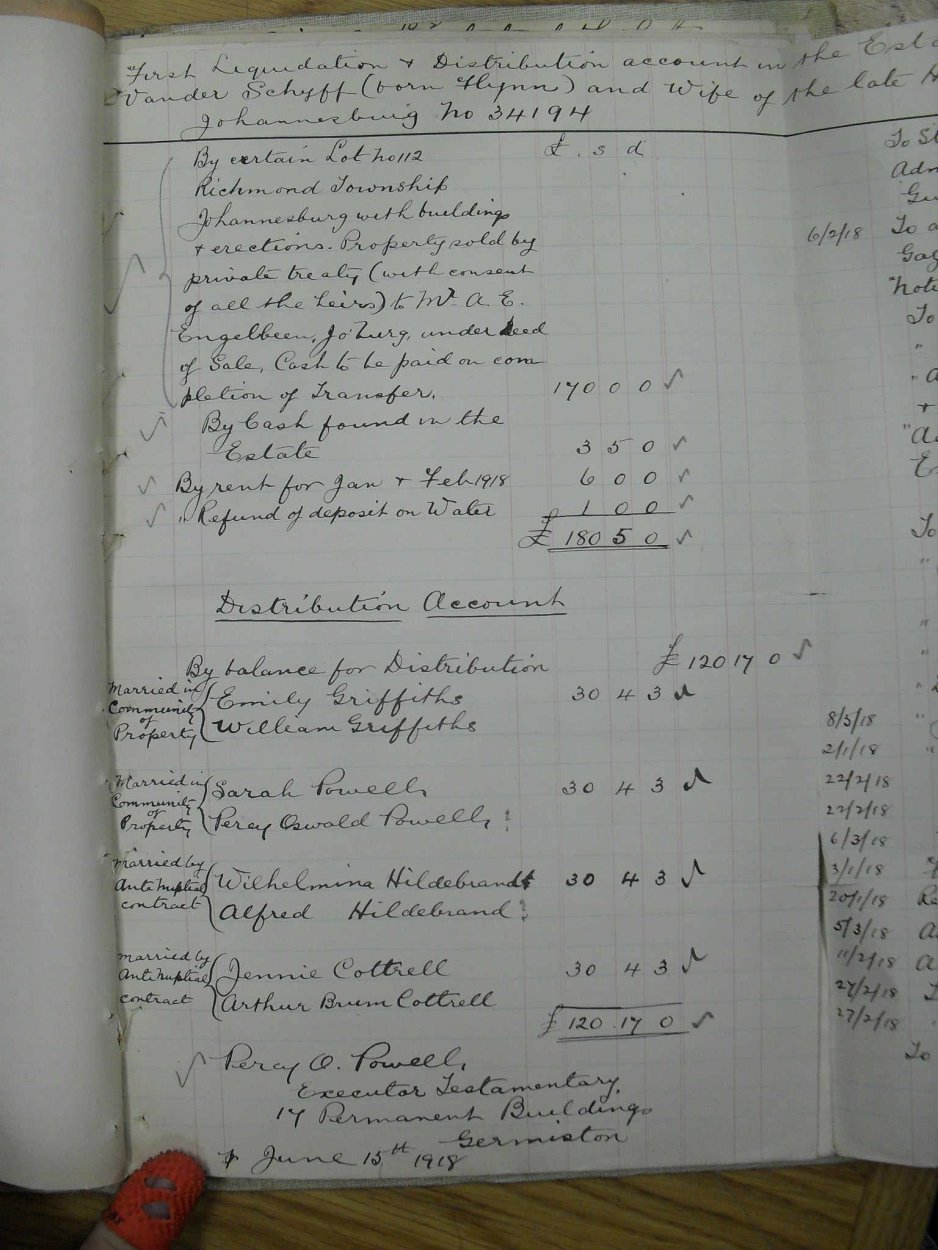 "First Liquidation & Distribution account in the Esta
Vander Schyff (born Flynn) and Wife of the late H
Johannesburg No 34194
By certain Lot No 112 £ . s d
Richmond Township
Johannesburg with buildings
& erections. Property sold by
private treaty (with consent
of all the heirs) to Mr. A. E.
Engelbeen, Jo'burg, under deed
of Sale, Cash to be paid on com
pletion of Transfer. 170 0 0
By Cash found in the
Estate 3 5 0
By rent for Jan & Feb 1918 6 0 0
" Refund of deposit on Water 1 0 0
£ 180 5 0
Distribution Account
By balance for Distribution £ 120 17 0
Married in Community of Property
Emily Griffiths 30 4 3
William Griffiths
Married in Community of Property
Sarah Powell 30 4 3
Percy Oswald Powell
Married by Anti Nuptial contract
Wilhelmina Hildebrandt 30 4 3
Alfred Hildebrand
Married by Anti Nuptial contract
Jennie Cottrell 30 4 3
Arthur Brum Cottrell
£ 120 17 0
Percy O. Powell,
Executor Testamentary,
17 Permanent Buildings
Germiston
June 15th 1918
To
Adm
6/2/18 To a
Gaz
"Note
To
"
" A
+
"
To
"
"
"
8/5/18 "
2/1/18 "
22/2/18
22/2/18
6/3/18
3/1/18
20/1/18 Re
5/3/18 A
11/2/18 A
27/2/18
27/2/18
To